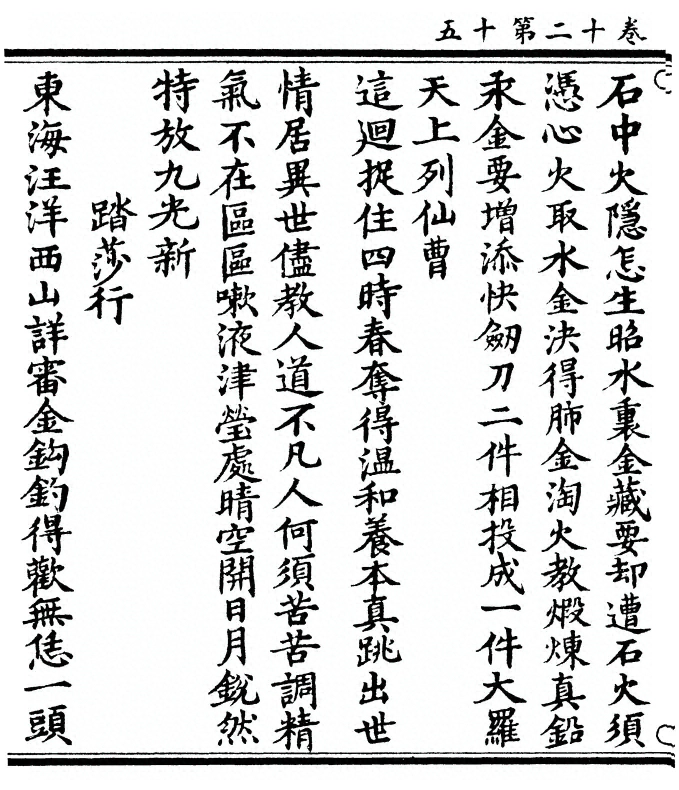 卷十二第十五
石中火隱怎生昭水裏金藏要却遭石火須
憑心火取水金決得肺金淘火教煅煉真鉛
汞金要增添快劒刀二件相投成一件大羅
天上列仙曹
這迴捉住四時春奪得温和養本真跳出世
情居異世儘教人道不凡人何須苦苦調精
氣不在區區嗽液津瑩處晴空開日月銳然
特放九光新
踏莎行
東海汪洋西山詳審金鈎釣得歡無恁一頭